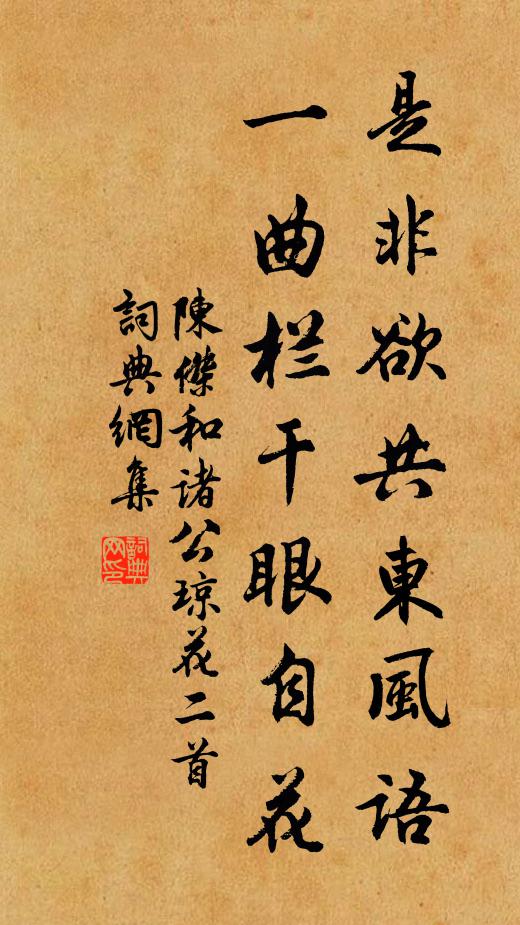 是非欲共東風語
一曲栏干眼自花
陳傑和诸公琼花二首
詞典網集
詞典网印